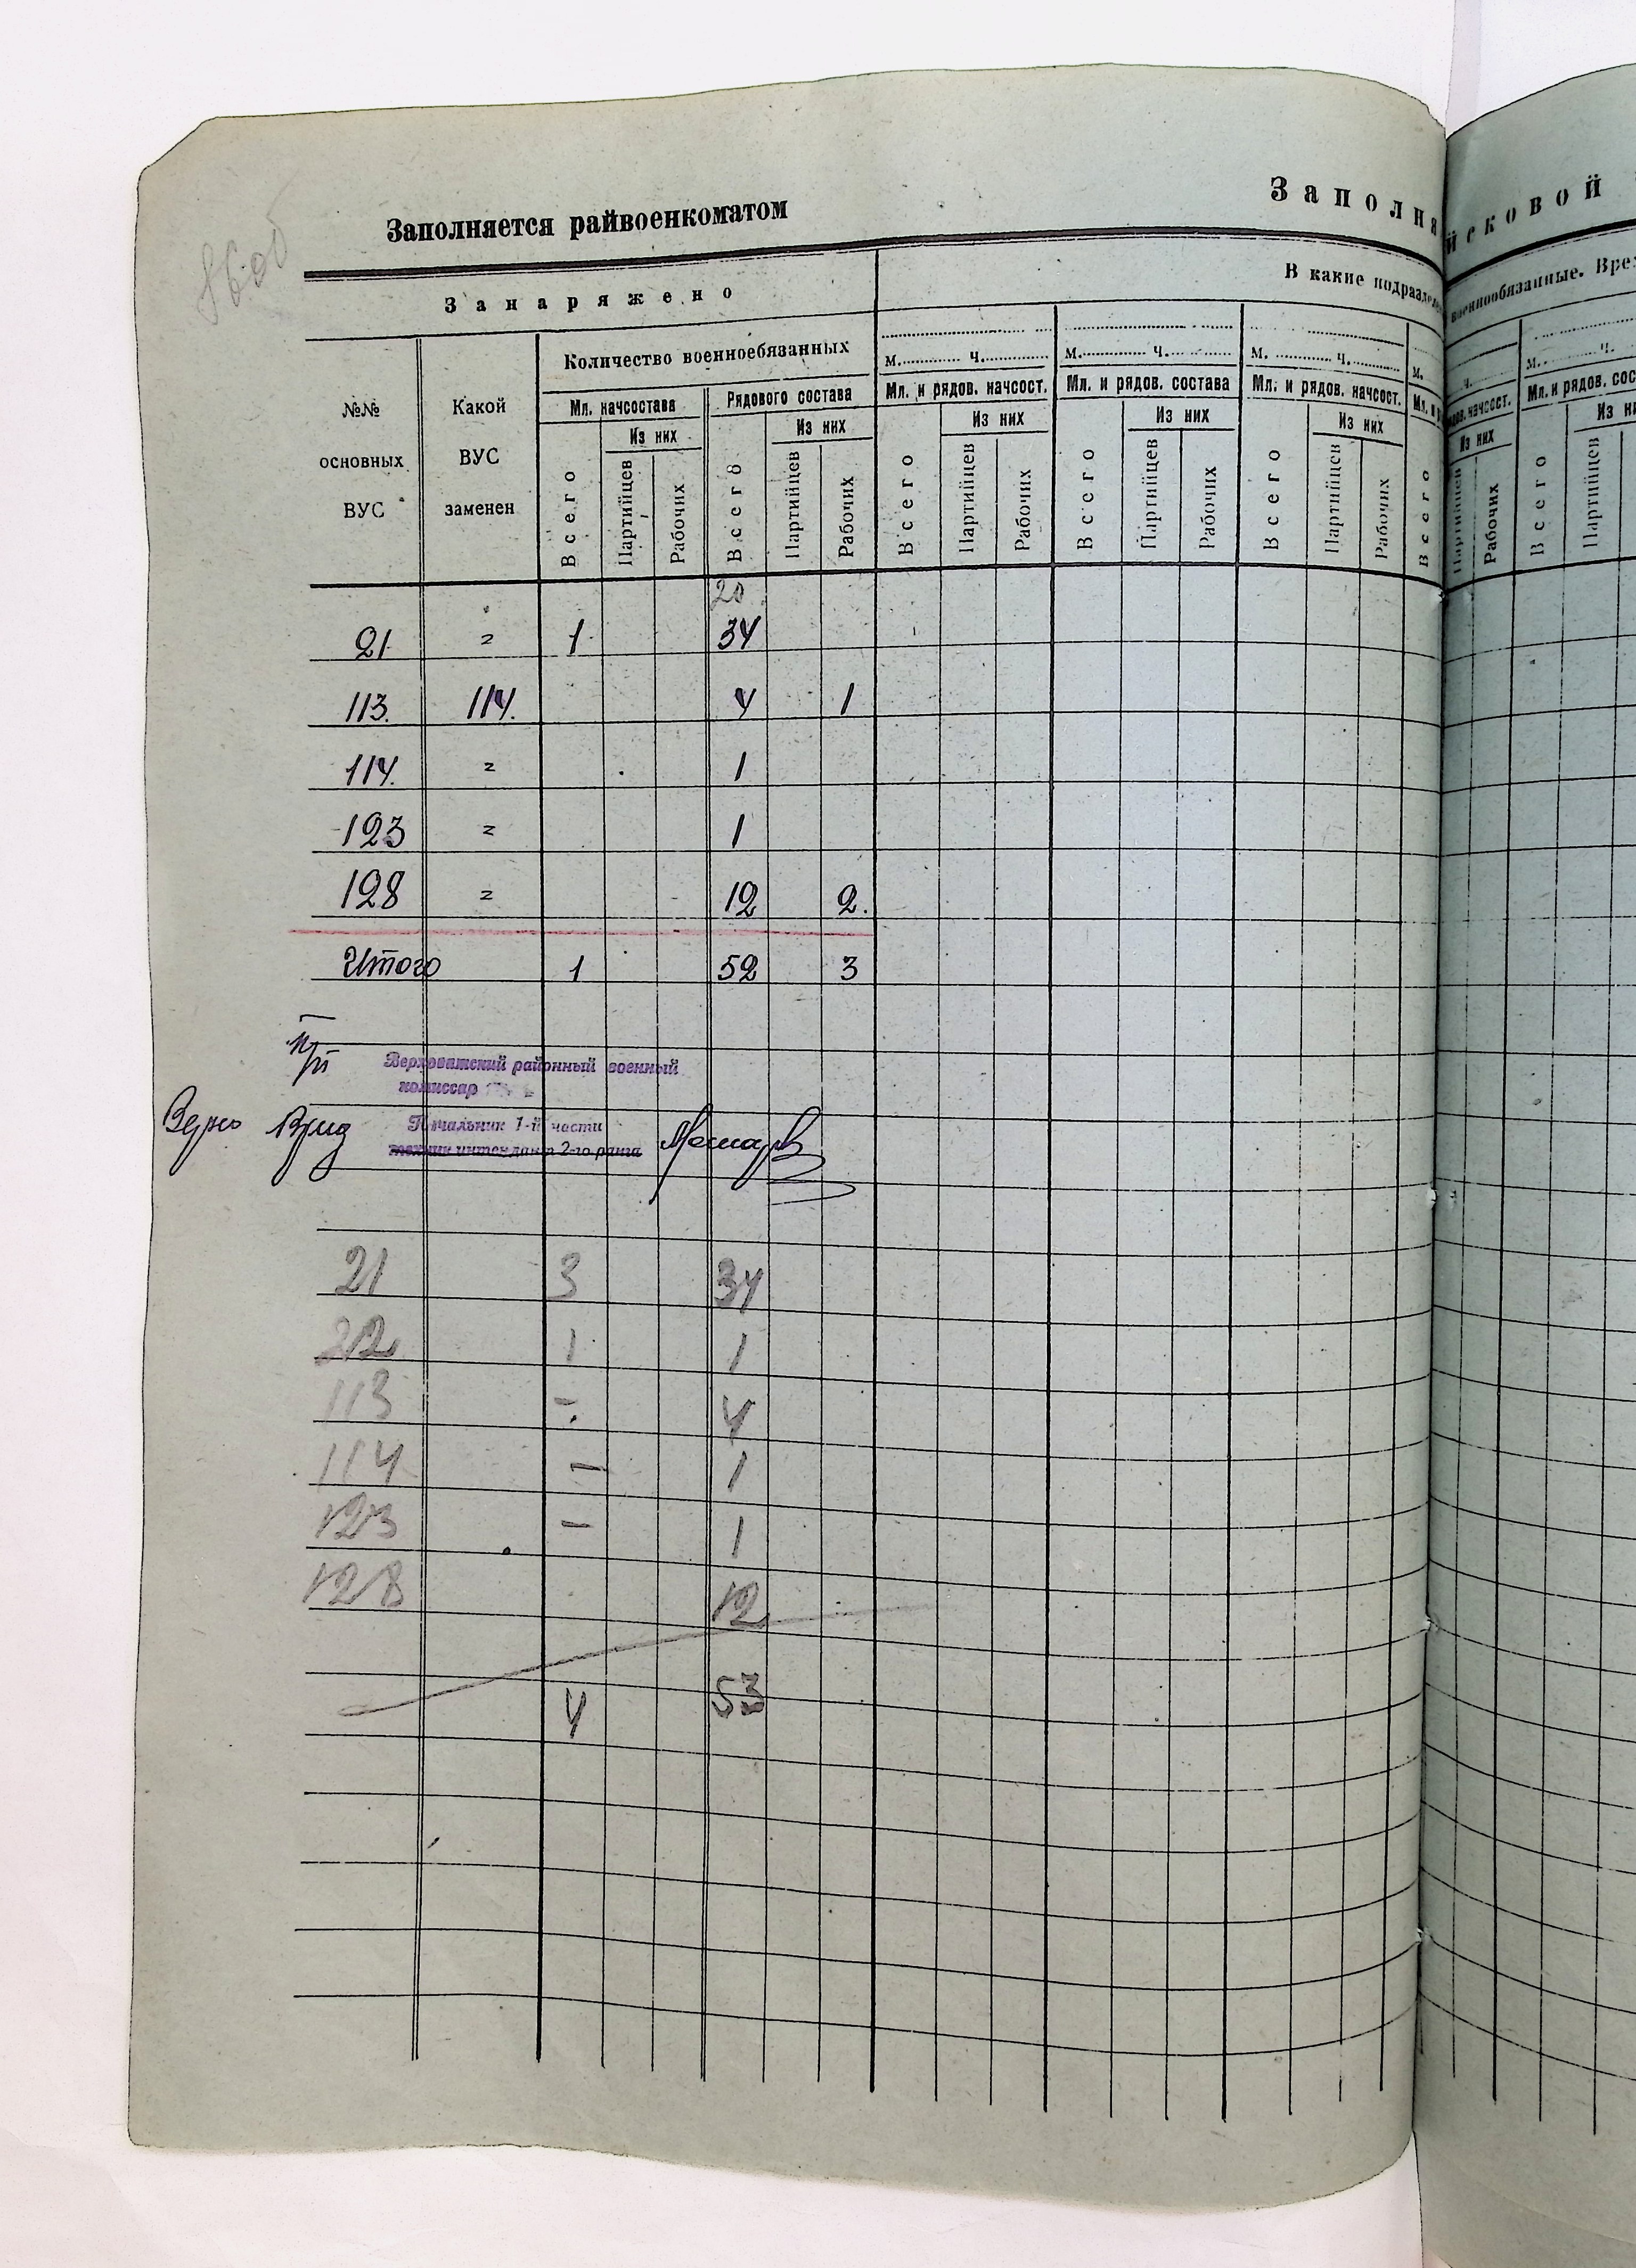 86об
Заполняется райвоенкоматом
Заполня
йсковой
Занаряжено
В какие подразделе
военнообязанные. Вре
№№ основных ВУС
Какой ВУС заменен
Количество военноебязанных
Мл. начсостава
Рядового состава
Из них
Из них
Всего
Партийцев
Рабочих
Всего
Партийцев
Рабочих
м. ч.
м. ч.
м. ч.
м.
ч.
м. ч.
Мл. и рядов. начсост.
Мл. и рядов. состава
Мл. и рядов. начсост.
Мл. и р
рядов. начсост.
Мл. и рядов. сос
Из них
Из них
Из них
Из них
Из н
Всего
Партийцев
Рабочих
Всего
Партийцев
Рабочих
Всего
Партийцев
Рабочих
Всего
Партийцев
Рабочих
Всего
Партийцев
20
21 = 1 34
113. 114. 4 1
114. = 1
123 = 1
128 = 12 2.
Итого 1 52 3
п/п
Верховажский районный военный
комиссар
Верно Врид Начальник 1-й части
техник интендант 2-го ранга
21 3 34
22 1 1
113 - 4
114 - 1
123 - 1
128 12
4 53